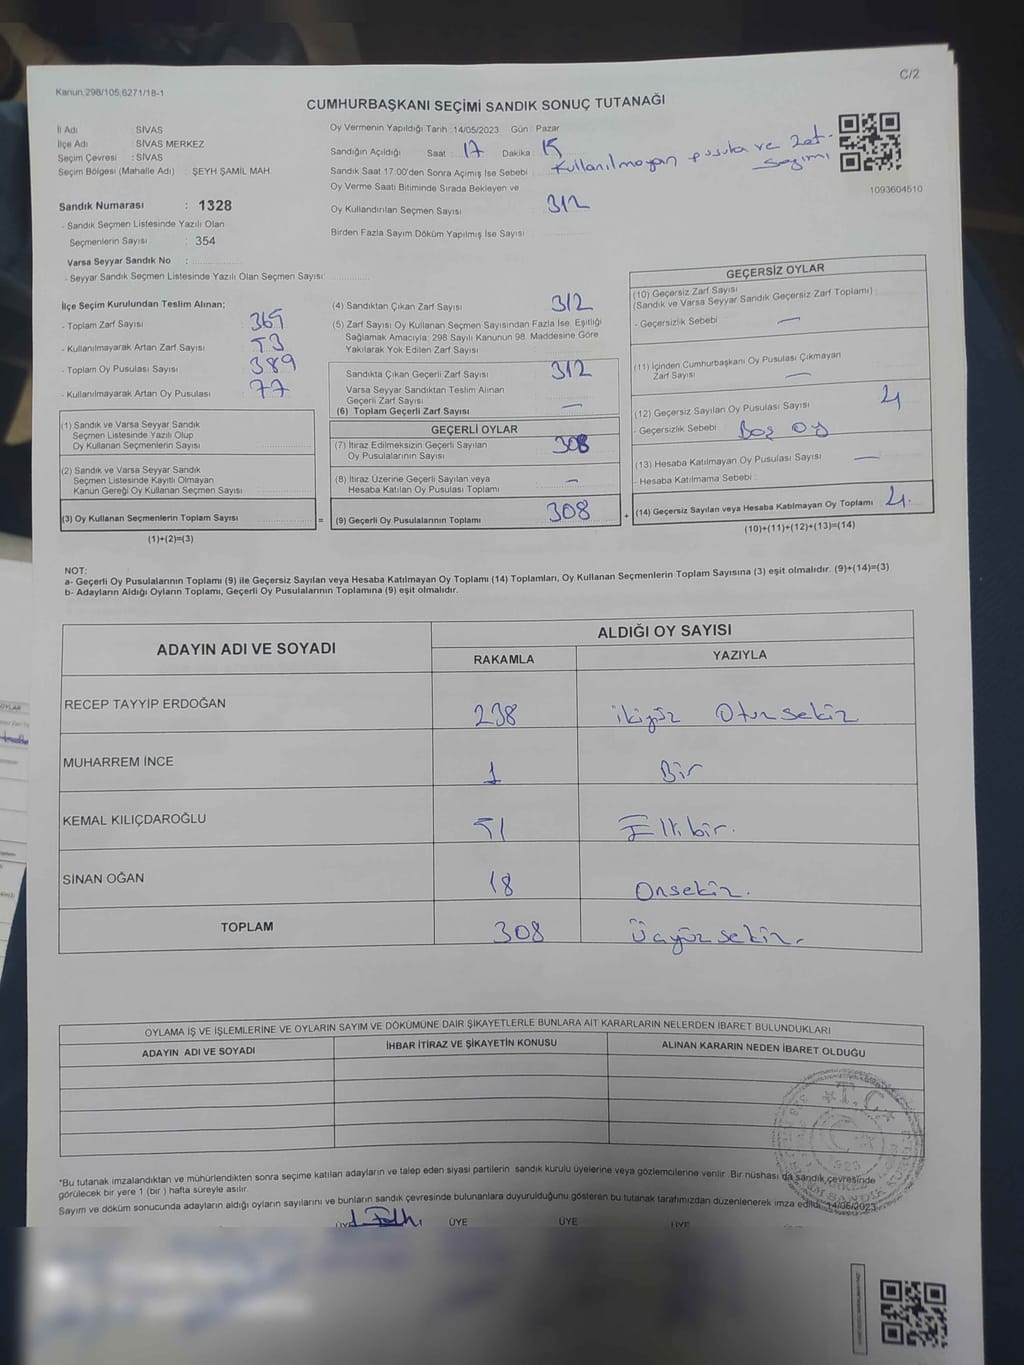 C/2
Kanun:298/105,6271/18-1
CUMHURBAŞKANI SEÇİMİ SANDIK SONUÇ TUTANAĞI
İl Adı : SİVAS
İlçe Adı : SİVAS MERKEZ
Seçim Çevresi : SİVAS
Seçim Bölgesi (Mahalle Adı) : ŞEYH ŞAMİL MAH.
Sandık Numarası : 1328
- Sandık Seçmen Listesinde Yazılı Olan
Seçmenlerin Sayısı : 354
Varsa Seyyar Sandık No :
- Seyyar Sandık Seçmen Listesinde Yazılı Olan Seçmen Sayısı:
Oy Vermenin Yapıldığı Tarih :14/05/2023 Gün : Pazar
Sandığın Açıldığı Saat : 17 Dakika : 15
Sandık Saat 17.00'den Sonra Açımış İse Sebebi : Kullanılmayan pusula ve Zarf
sayımı
Oy Verme Saati Bitiminde Sırada Bekleyen ve
Oy Kullandırılan Seçmen Sayısı 312
Birden Fazla Sayım Döküm Yapılmış İse Sayısı
1093604510
İlçe Seçim Kurulundan Teslim Alınan;
- Toplam Zarf Sayısı : 365
- Kullanılmayarak Artan Zarf Sayısı : 53
- Toplam Oy Pusulası Sayısı : 389
- Kullanılmayarak Artan Oy Pusulası : 77
(1) Sandık ve Varsa Seyyar Sandık
Seçmen Listesinde Yazılı Olup
Oy Kullanan Seçmenlerin Sayısı
(2) Sandık ve Varsa Seyyar Sandık
Seçmen Listesinde Kayıtlı Olmayan
Kanun Gereği Oy Kullanan Seçmen Sayısı
(3) Oy Kullanan Seçmenlerin Toplam Sayısı =
(1)+(2)=(3)
(4) Sandıktan Çıkan Zarf Sayısı 312
(5) Zarf Sayısı Oy Kullanan Seçmen Sayısından Fazla İse, Eşitliği
Sağlamak Amacıyla; 298 Sayılı Kanunun 98. Maddesine Göre
Yakılarak Yok Edilen Zarf Sayısı
Sandıkta Çıkan Geçerli Zarf Sayısı 312
Varsa Seyyar Sandıktan Teslim Alınan
Geçerli Zarf Sayısı —
(6) Toplam Geçerli Zarf Sayısı
GEÇERLİ OYLAR
(7) İtiraz Edilmeksizin Geçerli Sayılan
Oy Pusulalarının Sayısı 308
(8) İtiraz Üzerine Geçerli Sayılan veya
Hesaba Katılan Oy Pusulası Toplamı —
(9) Geçerli Oy Pusulalarının Toplamı 308 +
GEÇERSİZ OYLAR
(10) Geçersiz Zarf Sayısı
(Sandık ve Varsa Seyyar Sandık Geçersiz Zarf Toplamı) :
- Geçersizlik Sebebi : —
(11) İçinden Cumhurbaşkanı Oy Pusulası Çıkmayan
Zarf Sayısı —
(12) Geçersiz Sayılan Oy Pusulası Sayısı 4
- Geçersizlik Sebebi : Boş oy
(13) Hesaba Katılmayan Oy Pusulası Sayısı —
- Hesaba Katılmama Sebebi :
(14) Geçersiz Sayılan veya Hesaba Katılmayan Oy Toplamı 4.
(10)+(11)+(12)+(13)=(14)
NOT:
a- Geçerli Oy Pusulalarının Toplamı (9) ile Geçersiz Sayılan veya Hesaba Katılmayan Oy Toplamı (14) Toplamları, Oy Kullanan Seçmenlerin Toplam Sayısına (3) eşit olmalıdır. (9)+(14)=(3)
b- Adayların Aldığı Oyların Toplamı, Geçerli Oy Pusulalarının Toplamına (9) eşit olmalıdır.
ADAYIN ADI VE SOYADI ALDIĞI OY SAYISI
RAKAMLA YAZIYLA
RECEP TAYYİP ERDOĞAN 238 ikiyüz Otuzsekiz
MUHARREM İNCE 1 Bir
KEMAL KILIÇDAROĞLU 51 Ellibir.
SİNAN OĞAN 18 Onsekiz.
TOPLAM 308 Üçyüzsekiz.
OYLAMA İŞ VE İŞLEMLERİNE VE OYLARIN SAYIM VE DÖKÜMÜNE DAİR ŞİKAYETLERLE BUNLARA AİT KARARLARIN NELERDEN İBARET BULUNDUKLARI
ADAYIN ADI VE SOYADI İHBAR İTİRAZ VE ŞİKAYETİN KONUSU ALINAN KARARIN NEDEN İBARET OLDUĞU
T.C.
*Bu tutanak imzalandıktan ve mühürlendikten sonra seçime katılan adayların ve talep eden siyasi partilerin sandık kurulu üyelerine veya gözlemcilerine verilir. Bir nüshası da sandık çevresinde
görülecek bir yere 1 (bir) hafta süreyle asılır.
Sayım ve döküm sonucunda adayların aldığı oyların sayılarını ve bunların sandık çevresinde bulunanlara duyurulduğunu gösteren bu tutanak tarafımızdan düzenlenerek imza edildi. 14/05/2023
ÜYE ÜYE ÜYE